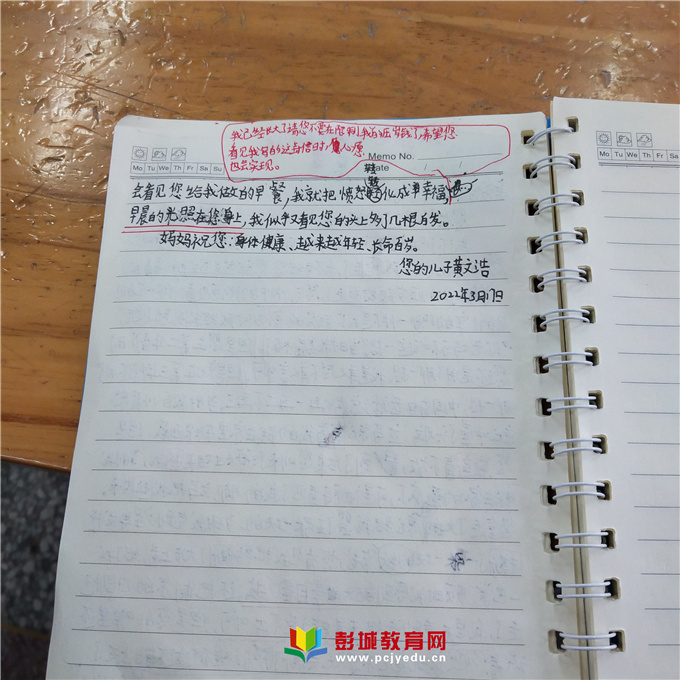 我已经长大了请您不要在陪到我的近岁钱了,希望您
看见我写的这封信时,心愿
也去实现。
Memo No.
Date / /
Mo Tu We Th Fr Sa Su
Mo Tu We Th Fr Sa
去看见您给我做的早餐,我就把愤怒转化成幸福
早晨的光照在您身上,我似乎又看见您的头上多了几根白发。
妈妈祝您:身体健康、越来越年轻、长命百岁。
您的儿子黄文浩
2022年3月17日
彭城教育网
www.pcjyedu.cn